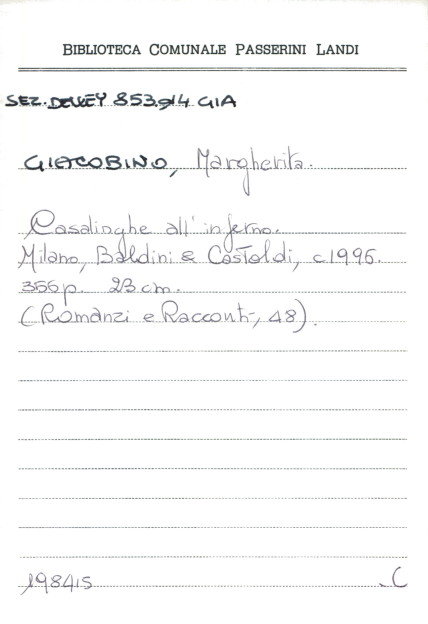 BIBLIOTECA COMUNALE PASSERINI LANDI
SEZ. DEWEY 853.914 GIA
GIACOBINO, Margherita.
Casalinghe all'inferno.
Milano, Baldini & Castoldi, c1996.
356 p. 23 cm.
(Romanzi e Racconti, 48).
198415
C